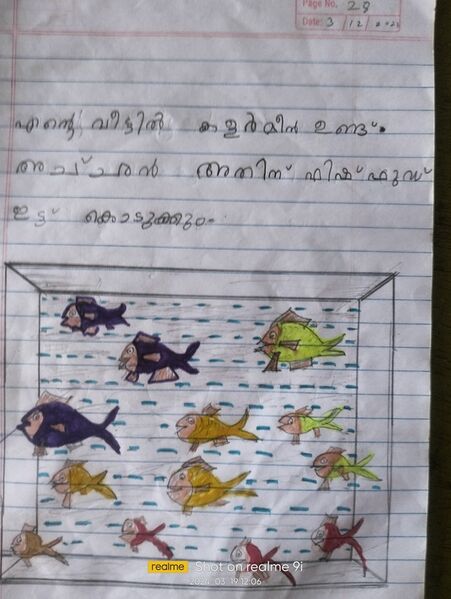 Page No. 28
Date: 3 / 12 / 202
എന്റെ വീട്ടിൽ കളർമീൻ ഉണ്ട്.
അതിന് ഫിഷ്ഫുഡ്
ഇട്ട് കൊടുക്കും.
realme Shot on realme 9i
2024.03.19 12:06